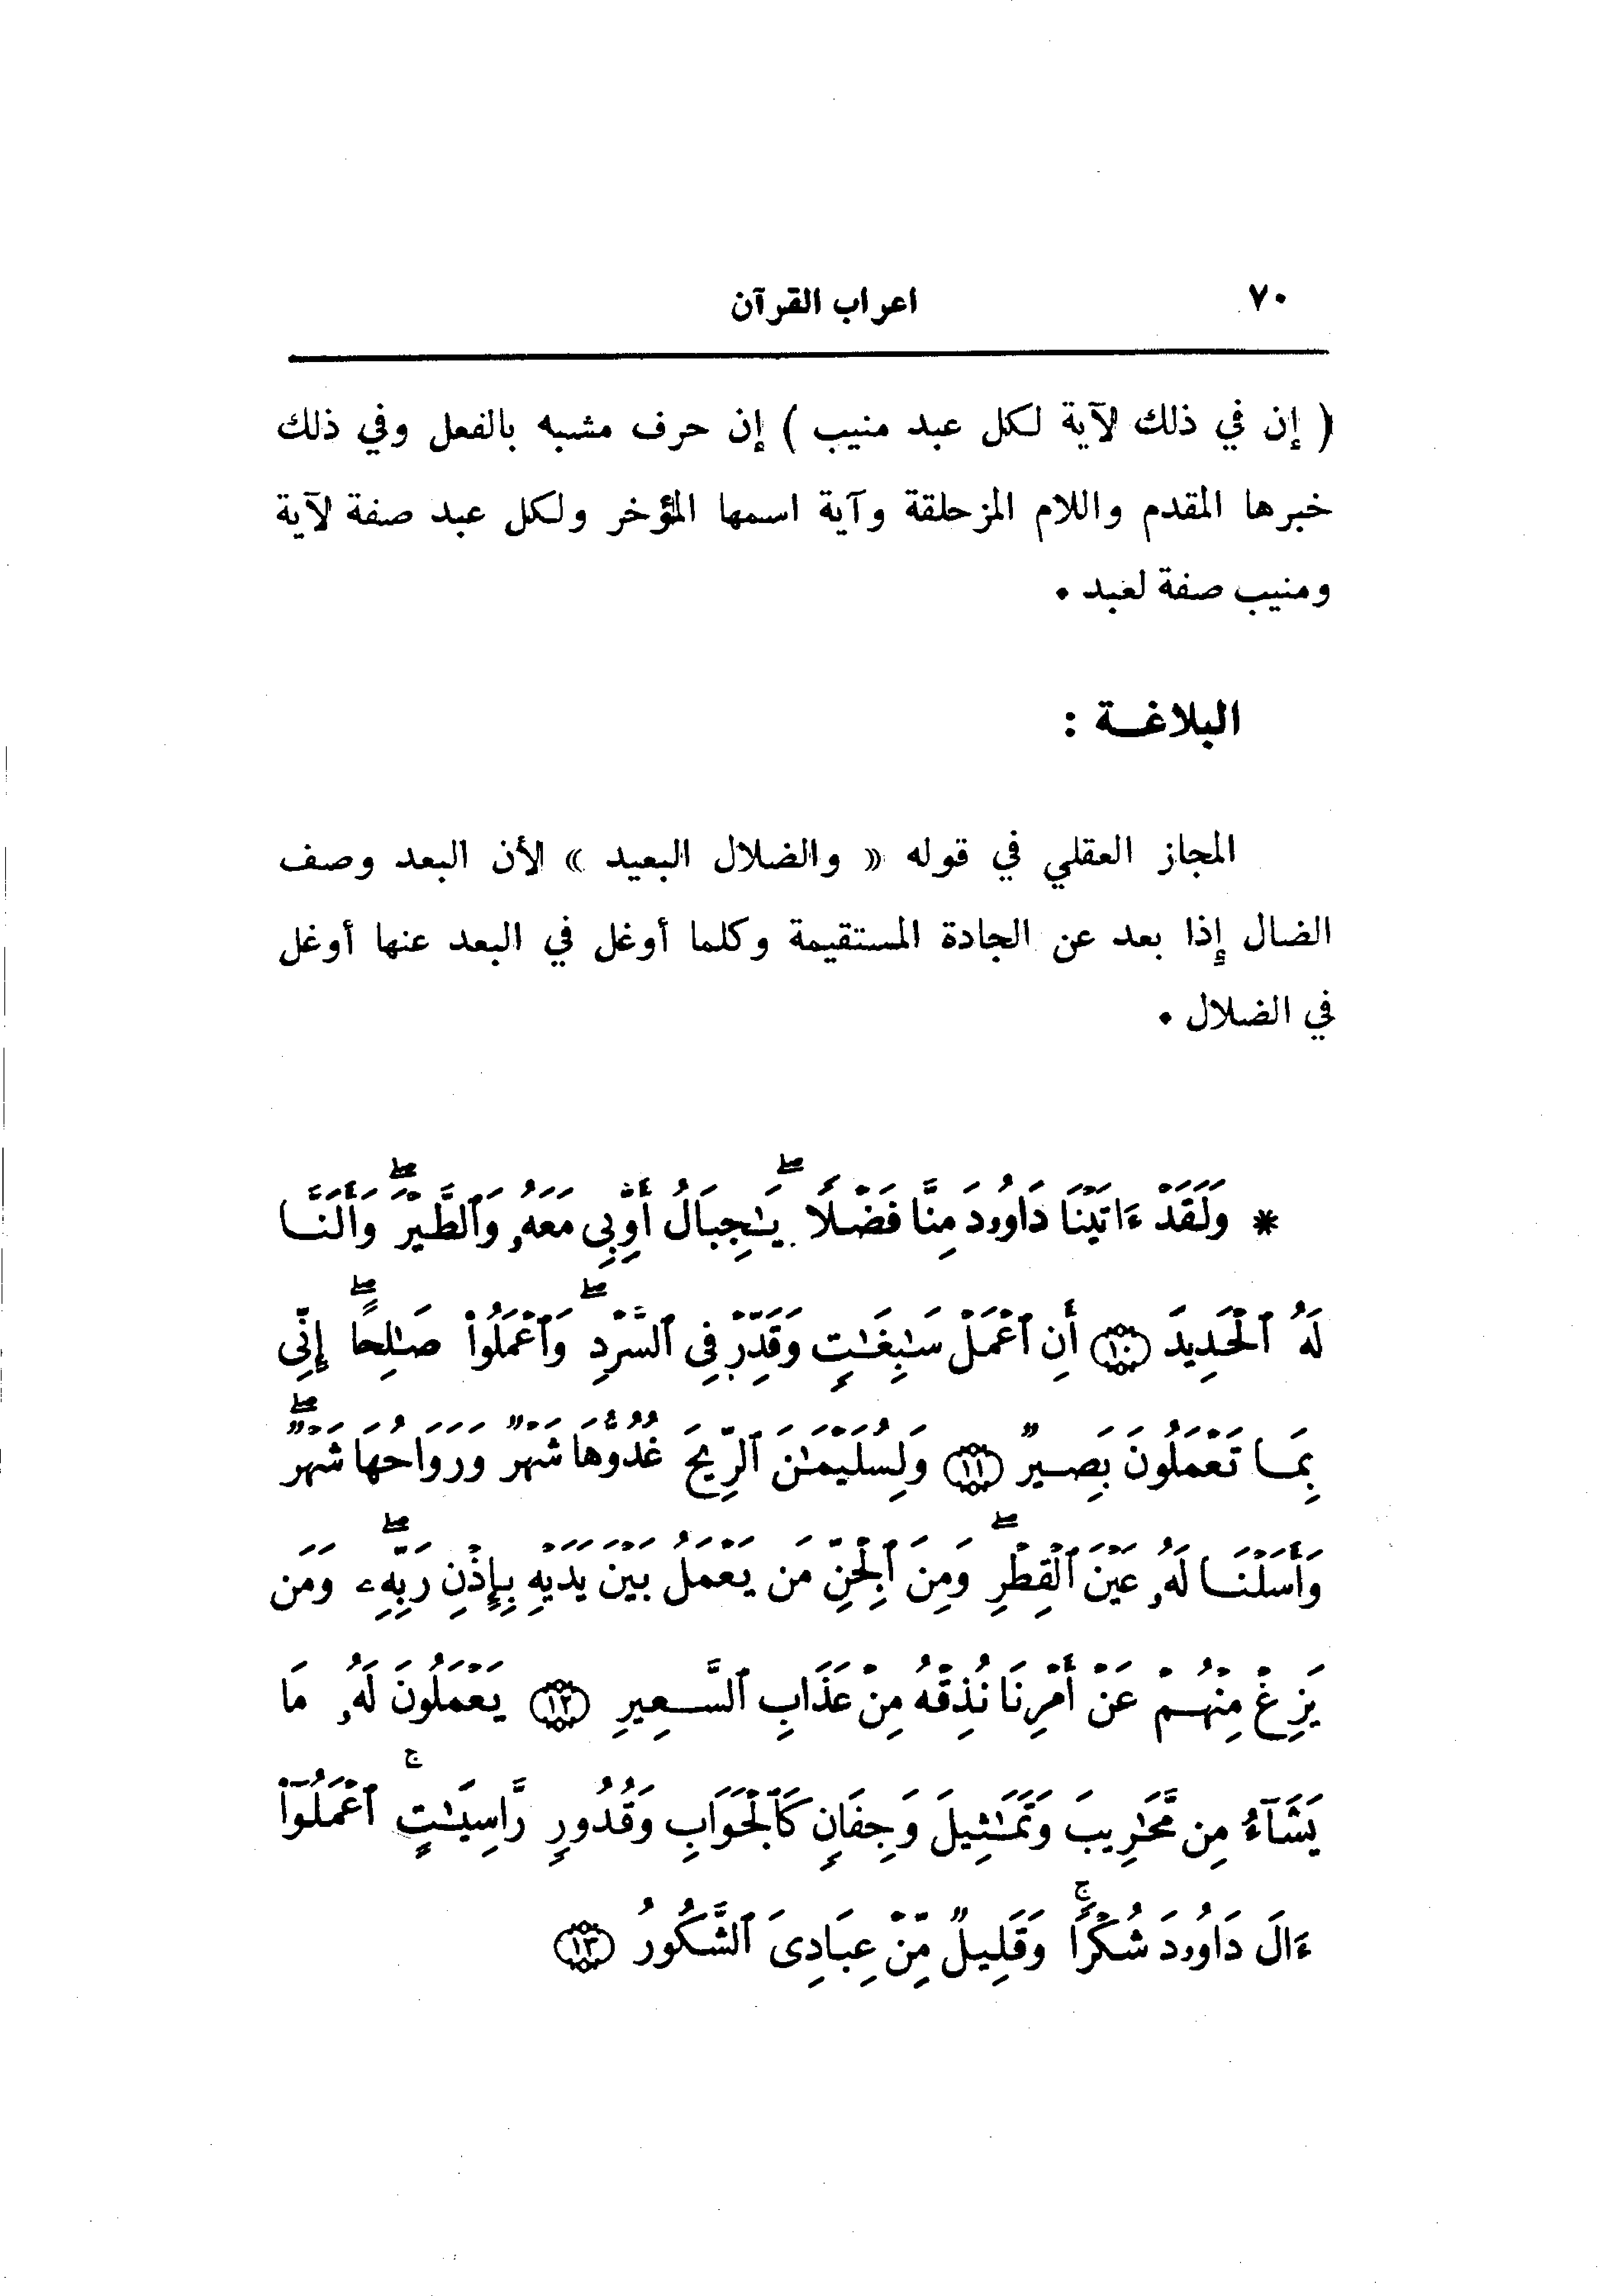 ٧٠ اعراب القرآن
( إن في ذلك لآية لكل عبد منيب ) إن حرف مشبه بالفعل وفي ذلك
خبرها المقدم واللام المزحلقة وآية اسمها المؤخر ولكل عبد صفة لآية
ومنيب صفة لعبد .
البلاغــة :
المجاز العقلي في قوله « والضلال البعيد » لأن البعد وصف
الضال إذا بعد عن الجادة المستقيمة وكلما أوغل في البعد عنها أوغل
في الضلال .
* وَلَقَدْ ءَاتَيْنَا دَاوُۥدَ مِنَّا فَضْلًا ۖ يَـٰجِبَالُ أَوِّبِى مَعَهُۥ وَٱلطَّيْرَ ۖ وَأَلَنَّا
لَهُ ٱلْحَدِيدَ ﴿١٠﴾ أَنِ ٱعْمَلْ سَـٰبِغَـٰتٍ وَقَدِّرْ فِى ٱلسَّرْدِ ۖ وَٱعْمَلُوا۟ صَـٰلِحًا ۖ إِنِّى
بِمَا تَعْمَلُونَ بَصِيرٌ ﴿١١﴾ وَلِسُلَيْمَـٰنَ ٱلرِّيحَ غُدُوُّهَا شَهْرٌ وَرَوَاحُهَا شَهْرٌ ۖ
وَأَسَلْنَا لَهُۥ عَيْنَ ٱلْقِطْرِ ۖ وَمِنَ ٱلْجِنِّ مَن يَعْمَلُ بَيْنَ يَدَيْهِ بِإِذْنِ رَبِّهِۦ ۖ وَمَن
يَزِغْ مِنْهُمْ عَنْ أَمْرِنَا نُذِقْهُ مِنْ عَذَابِ ٱلسَّعِيرِ ﴿١٢﴾ يَعْمَلُونَ لَهُۥ مَا
يَشَآءُ مِن مَّحَـٰرِيبَ وَتَمَـٰثِيلَ وَجِفَانٍ كَٱلْجَوَابِ وَقُدُورٍ رَّاسِيَـٰتٍ ۚ ٱعْمَلُوٓا۟
ءَالَ دَاوُۥدَ شُكْرًا ۚ وَقَلِيلٌ مِّنْ عِبَادِىَ ٱلشَّكُورُ ﴿١٣﴾